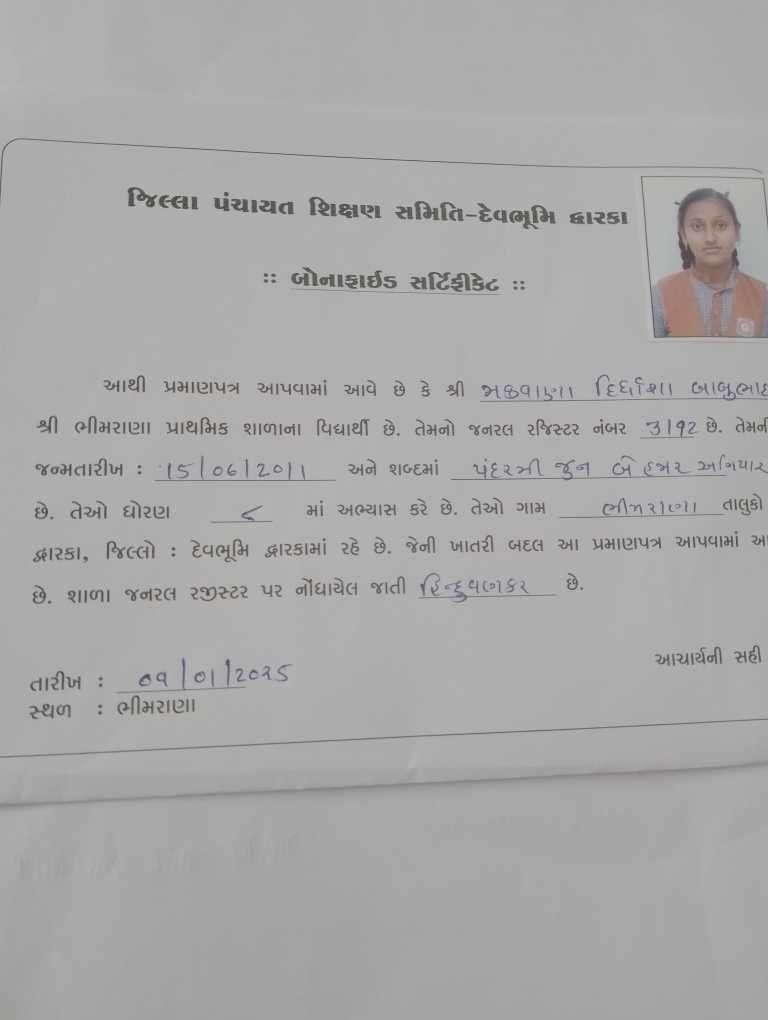 જિલ્લા પંચાયત શિક્ષણ સમિતિ-દેવભૂમિ દ્વારકા
:: બોનાફાઈડ સર્ટિફીકેટ ::
આથી પ્રમાણપત્ર આપવામાં આવે છે કે શ્રી મકવાણા
શ્રી ભીમરાણા પ્રાથમિક શાળાના વિદ્યાર્થી છે. તેમનો જનરલ રજિસ્ટર નંબર છે.
જન્મતારીખ : 15/06/2011 અને શબ્દમાં પંદરમી જુન બે હજાર અગિયાર
છે. તેઓ ધોરણ ૮ માં અભ્યાસ કરે છે. તેઓ ગામ ભીમરાણા તાલુકો
દ્વારકા, જિલ્લો : દેવભૂમિ દ્વારકામાં રહે છે. જેની ખાતરી બદલ આ પ્રમાણપત્ર આપવામાં
છે. શાળા જનરલ રજીસ્ટર પર નોંધાયેલ જાતી હિન્દુવણકર છે.
આચાર્યની સહી
તારીખ :
સ્થળ : ભીમરાણા